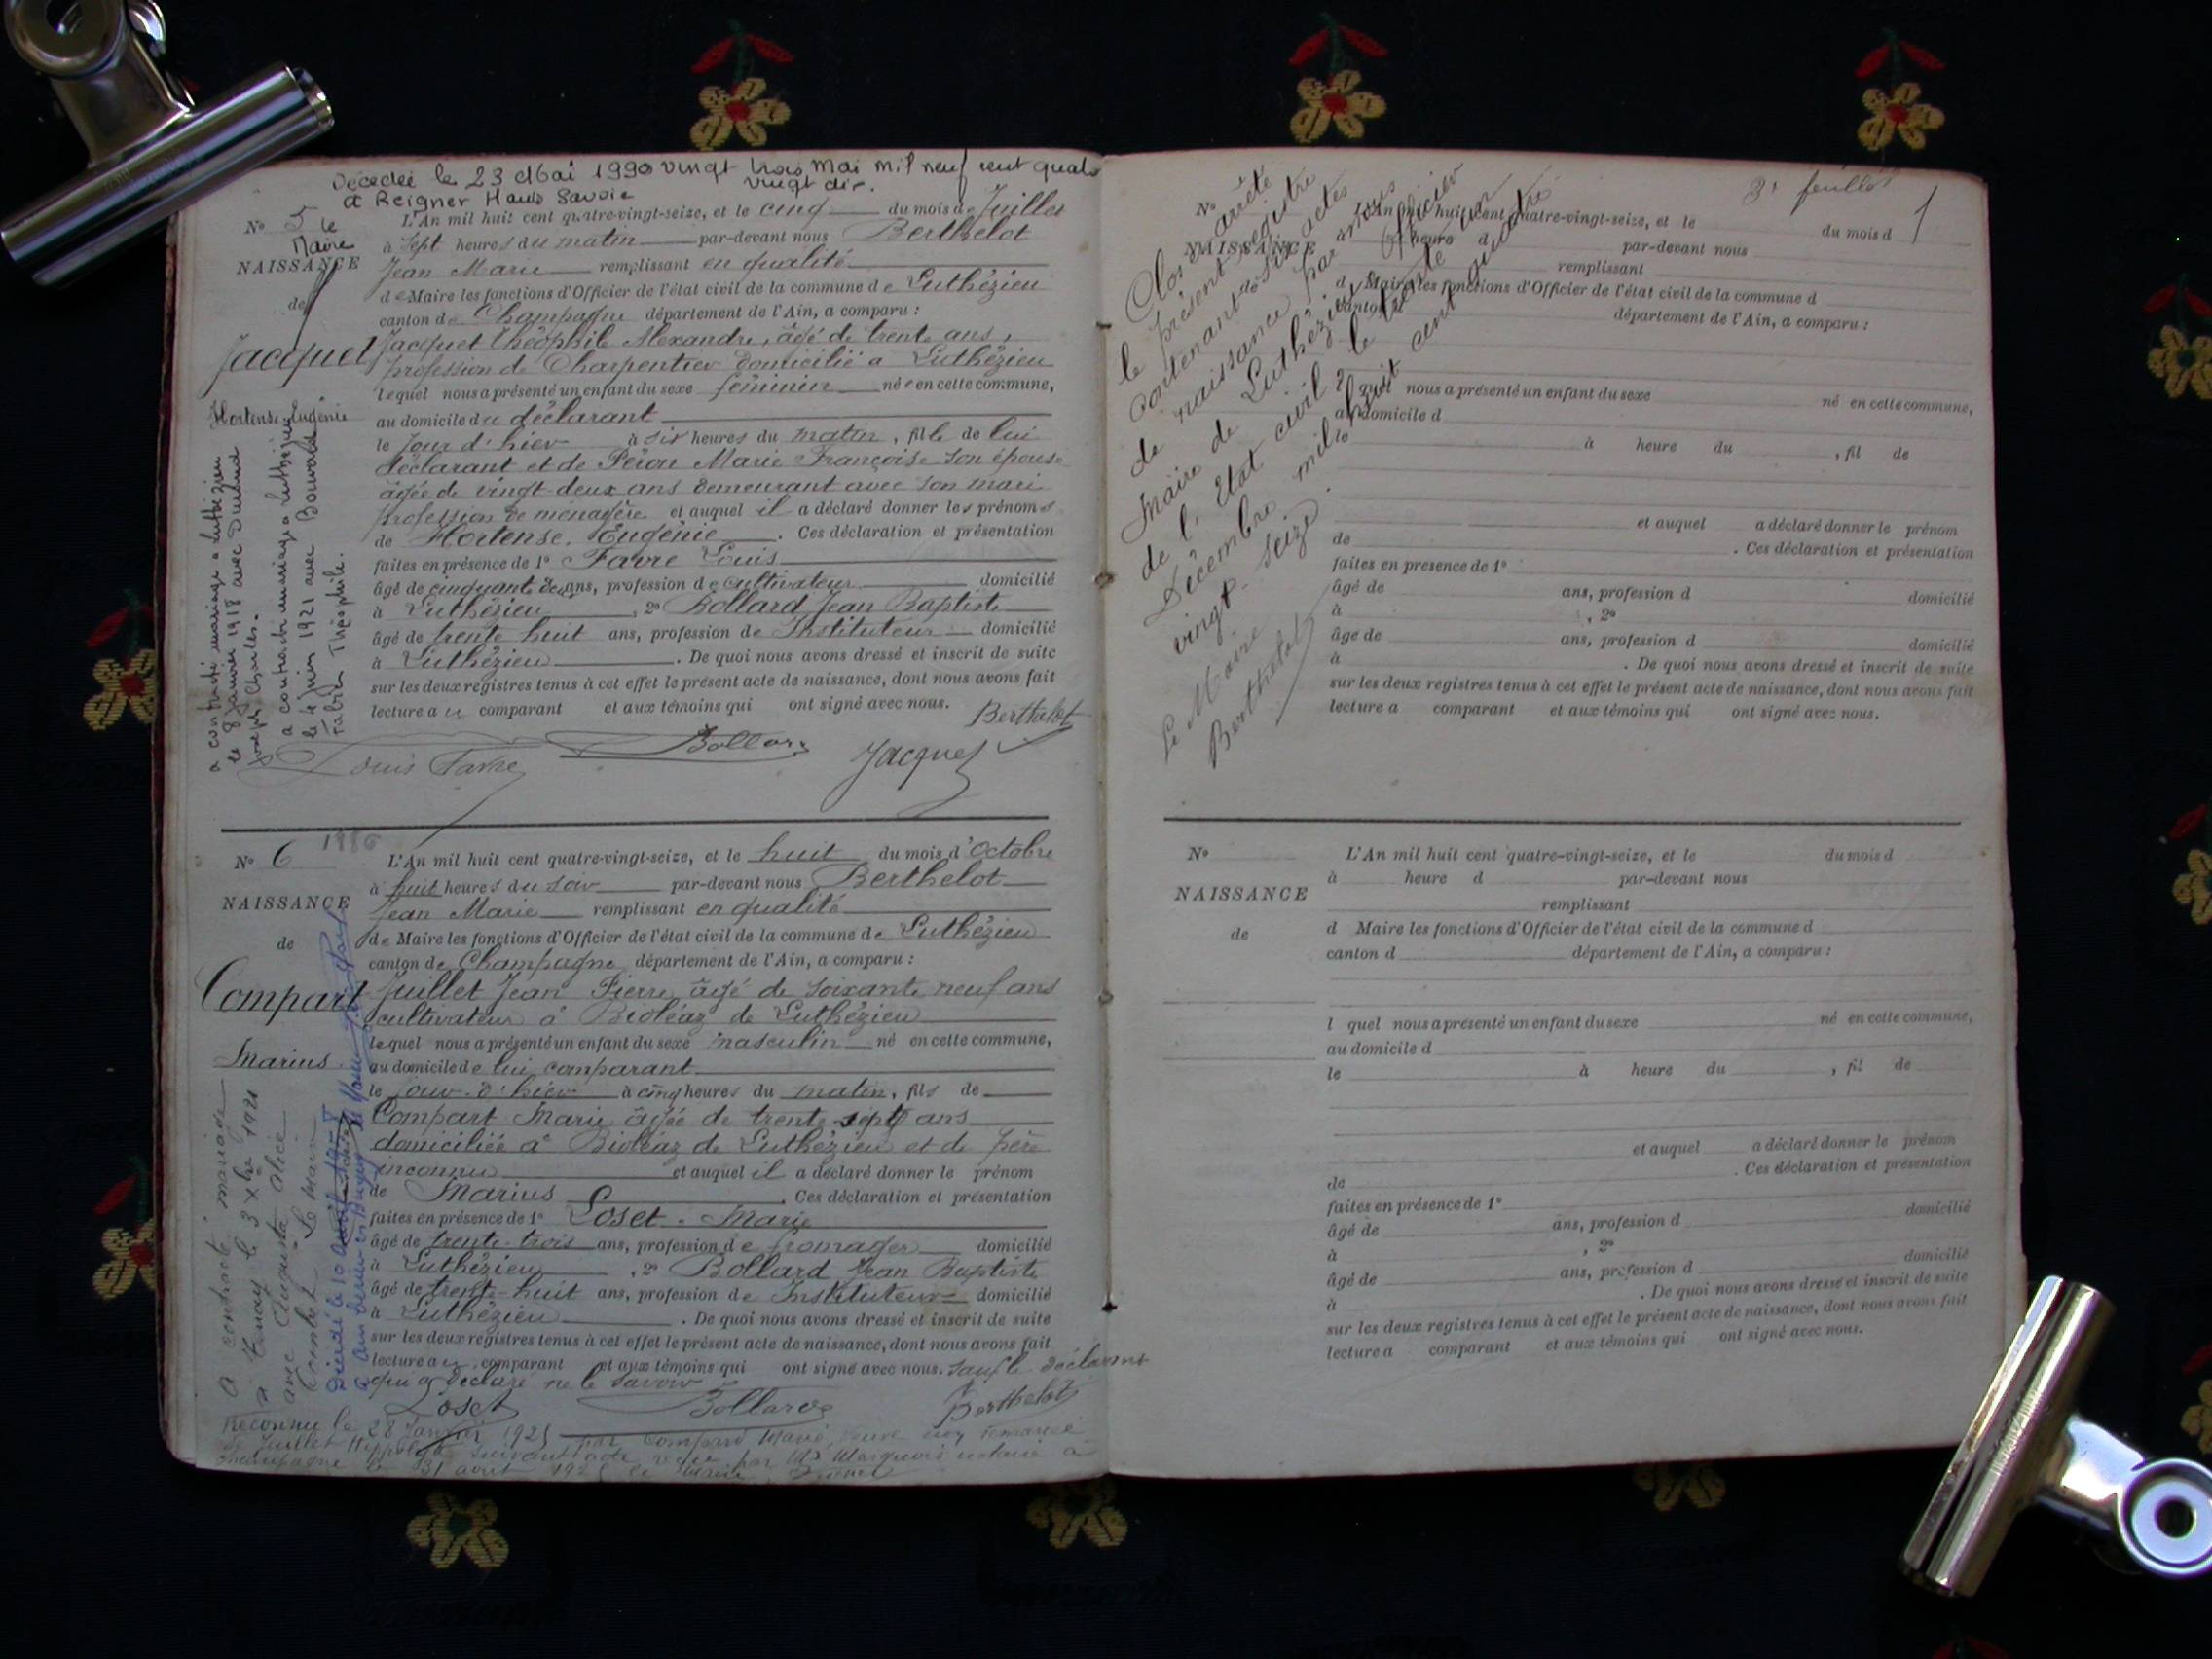 Décédée le 23 Mai 1990 vingt trois Mai mil neuf cent quatre
vingt dix.
à Reigner Haute Savoie
le Maire
N° 5
NAISSANCE
de
Jacquet
Hortense Eugénie
a contracté mariage a Luthézieu
le 8 janvier 1918 avec Durand
Joseph Charles.
a contracté mariage a Luthézieu
le 4 juin 1921 avec
Théophile.
L'An mil huit cent quatre-vingt-seize, et le cinq du mois de Juillet
à sept heures du matin par-devant nous Berthelot
Jean Marie remplissant en qualité
de Maire les fonctions d'Officier de l'état civil de la commune de Luthézieu
canton de Champagne département de l'Ain, a comparu :
Jacquet Théophile Alexandre, âgé de trente ans,
profession de Charpentier domicilié à Luthézieu
lequel nous a présenté un enfant du sexe féminin née en cette commune,
au domicile du déclarant
le jour d'hier à six heures du matin, fille de lui
déclarant et de Péron Marie Françoise son épouse
âgée de vingt-deux ans demeurant avec son mari
profession de ménagère et auquel il a déclaré donner les prénoms
de Hortense, Eugénie. Ces déclaration et présentation
faites en présence de 1° Favre Louis
âgé de cinquante deux ans, profession de cultivateur domicilié
à Luthézieu, 2° Bollard Jean Baptiste
âgé de trente huit ans, profession de Instituteur domicilié
à Luthézieu. De quoi nous avons dressé et inscrit de suite
sur les deux registres tenus à cet effet le présent acte de naissance, dont nous avons fait
lecture au comparant et aux témoins qui ont signé avec nous.
Berthelot
Louis Favre Bollard Jacquet
1896
N° 6
NAISSANCE
de
Compart
Marius
a contracté mariage
à Tenay le 3 xbre 1921
avec Augusta Alice
Le Maire
Décédé le 10
L'An mil huit cent quatre-vingt-seize, et le huit du mois d'Octobre
à huit heures du soir par-devant nous Berthelot
Jean Marie remplissant en qualité
de Maire les fonctions d'Officier de l'état civil de la commune de Luthézieu
canton de Champagne département de l'Ain, a comparu :
Juillet Jean Pierre, âgé de soixante neuf ans
cultivateur à Bioléaz de Luthézieu
lequel nous a présenté un enfant du sexe masculin né en cette commune,
au domicile de lui comparant
le jour d'hier à cinq heures du matin, fils de
Compart Marie âgée de trente-sept ans
domiciliée à Bioléaz de Luthézieu et de père
inconnu et auquel il a déclaré donner le prénom
de Marius. Ces déclaration et présentation
faites en présence de 1° Loset Marie
âgé de trente-trois ans, profession de fromager domicilié
à Luthézieu, 2° Bollard Jean Baptiste
âgé de trente-huit ans, profession de Instituteur domicilié
à Luthézieu. De quoi nous avons dressé et inscrit de suite
sur les deux registres tenus à cet effet le présent acte de naissance, dont nous avons fait
lecture au comparant et aux témoins qui ont signé avec nous. sauf le déclarant
qui a déclaré ne le savoir
Loset Bollard Berthelot
Reconnu le 28 Janvier 1925 par Compard Marie, veuve non remariée
de Juillet Hippolyte suivant acte reçu par Me Marquois notaire à
Champagne le 31 août 1925 le Maire
3e feuillet
1
Clos et arrêté
le présent registre
contenant six actes
de naissance par nous
Maire de Luthézieu Officier
de l'Etat civil le trente un
Décembre mil huit cent quatre
vingt-seize
Le Maire
Berthelot
N°
NAISSANCE
de
L'An mil huit cent quatre-vingt-seize, et le du mois d
à heure d par-devant nous
remplissant
d Maire les fonctions d'Officier de l'état civil de la commune d
canton d département de l'Ain, a comparu :
l quel nous a présenté un enfant du sexe né en cette commune,
au domicile d
le à heure du , fil de
et auquel a déclaré donner le prénom
de . Ces déclaration et présentation
faites en présence de 1°
âgé de ans, profession d domicilié
à , 2°
âgé de ans, profession d domicilié
à . De quoi nous avons dressé et inscrit de suite
sur les deux registres tenus à cet effet le présent acte de naissance, dont nous avons fait
lecture a comparant et aux témoins qui ont signé avec nous.
N°
NAISSANCE
de
L'An mil huit cent quatre-vingt-seize, et le du mois d
à heure d par-devant nous
remplissant
d Maire les fonctions d'Officier de l'état civil de la commune d
canton d département de l'Ain, a comparu :
l quel nous a présenté un enfant du sexe né en cette commune,
au domicile d
le à heure du , fil de
et auquel a déclaré donner le prénom
de . Ces déclaration et présentation
faites en présence de 1°
âgé de ans, profession d domicilié
à , 2°
âgé de ans, profession d domicilié
à . De quoi nous avons dressé et inscrit de suite
sur les deux registres tenus à cet effet le présent acte de naissance, dont nous avons fait
lecture a comparant et aux témoins qui ont signé avec nous.